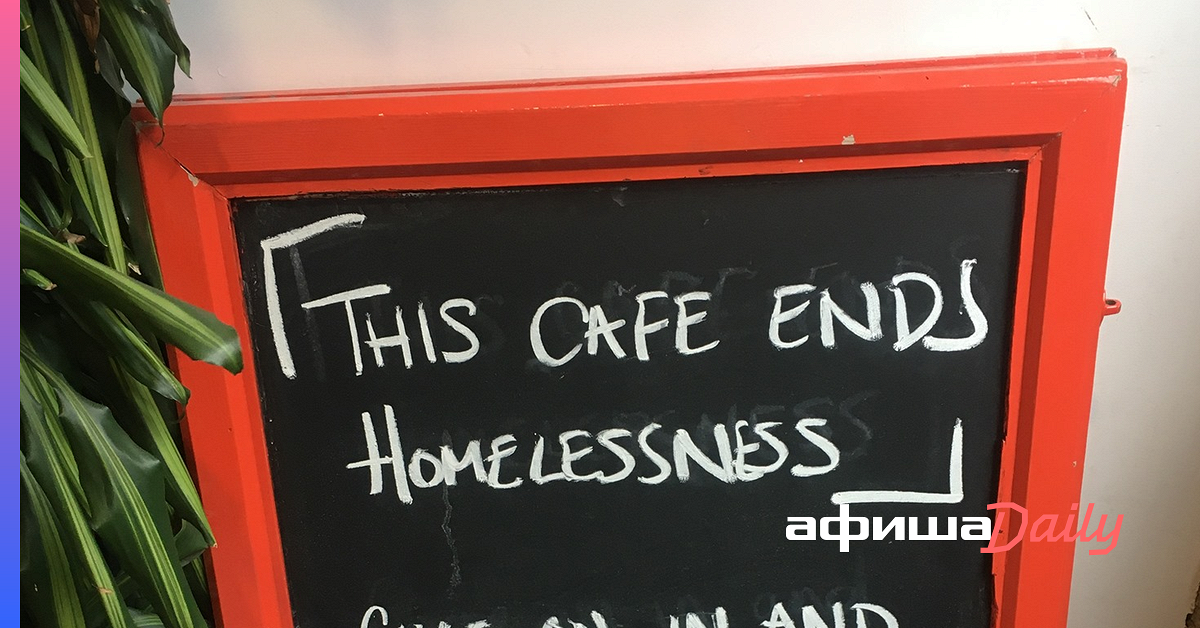 THIS CAFE ENDS
HOMELESSNESS
COME ON IN AND
афишаDaily